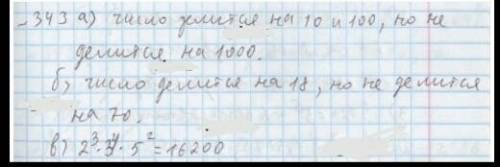 343 а) число делится на 10 и 100, но не
делится на 1000.
б) число делится на 18, но не делится
на 70.
в) 2³·3⁴·5²=16200